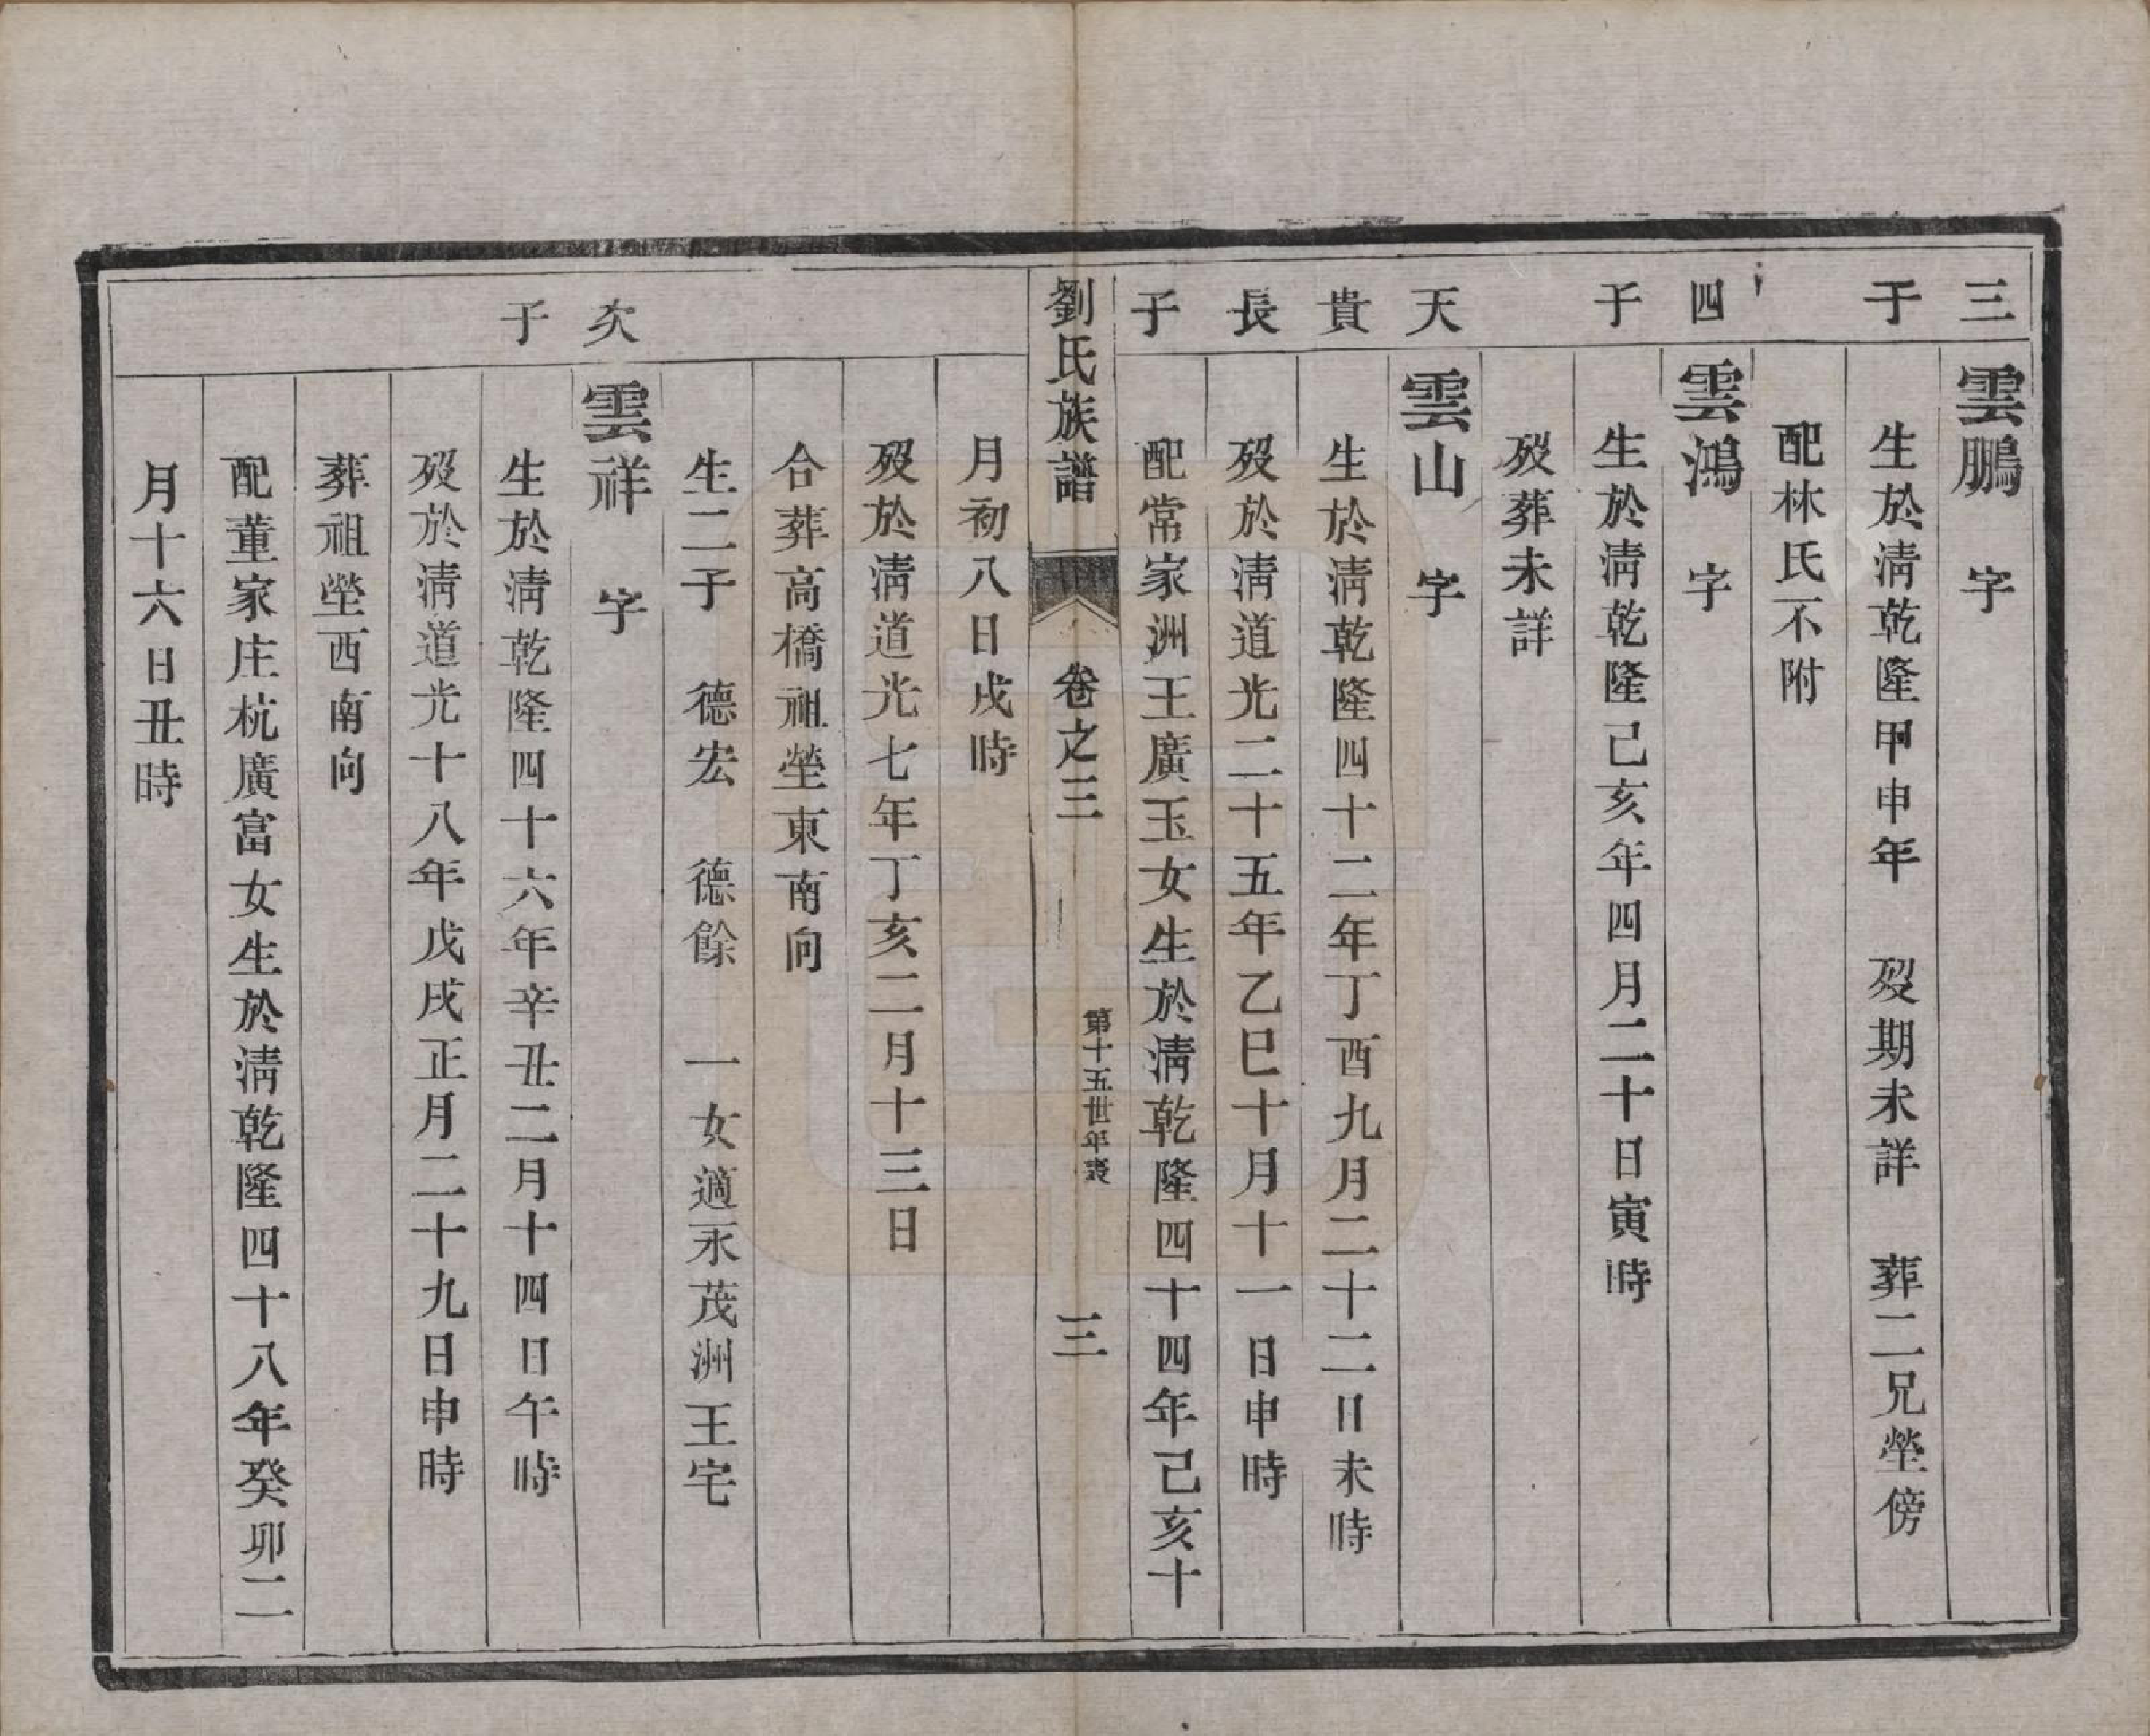 三子
雲鵬　字
生於淸乾隆甲申年　歿期未詳　葬二兄塋傍
配林氏不附
四子
雲鴻　字
生於淸乾隆己亥年四月二十日寅時
歿葬未詳
天貴長子
雲山　字
生於淸乾隆四十二年丁酉九月二十二日未時
歿於淸道光二十五年乙巳十月十一日申時
配常家洲王廣玉女生於淸乾隆四十四年己亥十
劉氏族譜　卷之三　第十五世年表　三
月初八日戌時
歿於淸道光七年丁亥二月十三日
合葬高橋祖塋東南向
生二子　德宏　德餘　一女適永茂洲王宅
次子
雲祥　字
生於淸乾隆四十六年辛丑二月十四日午時
歿於淸道光十八年戊戌正月二十九日申時
葬祖塋西南向
配董家庄杭廣富女生於淸乾隆四十八年癸卯二
月十六日丑時